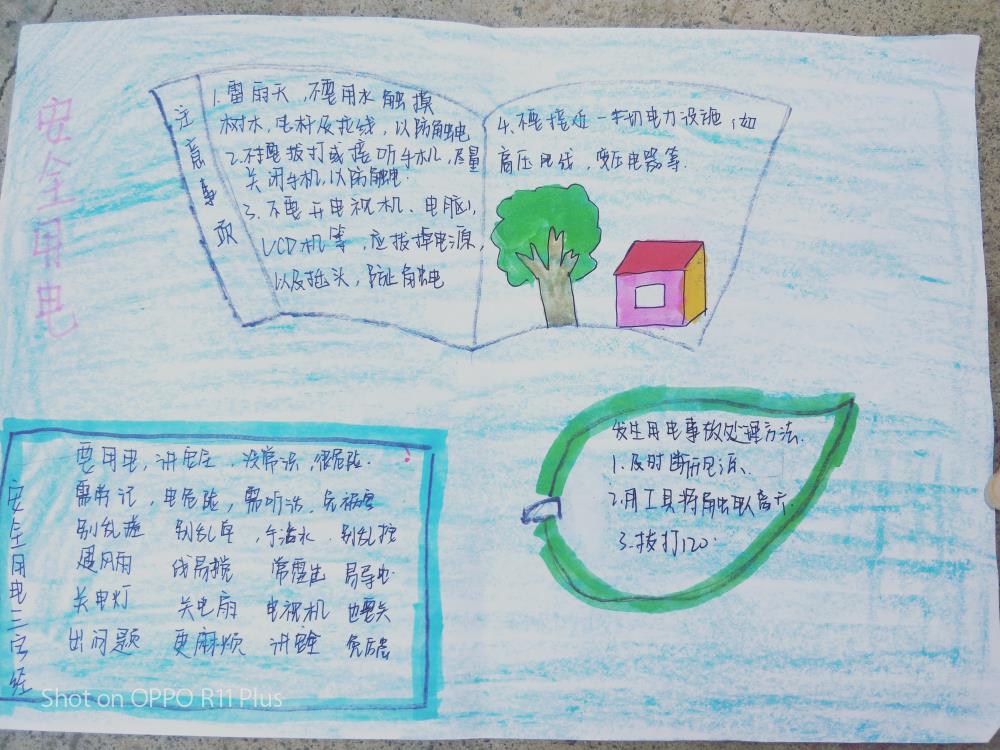 安全用电
注意事项
1.雷雨天,不要用水触摸
树木,电杆及拉线,以防触电
2.不要拔打或接听手机,尽量
关闭手机,以防触电.
3.不要开电视机、电脑,
VCD机等,应拔掉电源,
以及插头,防止触电
4.不要接近一切电力设施,如
高压电线,变压电器等.
安全用电三字经
要用电,讲安全,没常识,很危险.
需牢记,电危险,需听话,免祸害
别乱碰 别乱拉,手沾水.别乱按
遇风雨 线易搅 常露电 易导电
关电灯 关电扇 电视机 也要关
出问题 更麻烦 讲安全 免后患
发生用电事故处理方法.
1.及时断开电源、
2.用工具将触电
3.拔打120.
Shot on OPPO R11 Plus